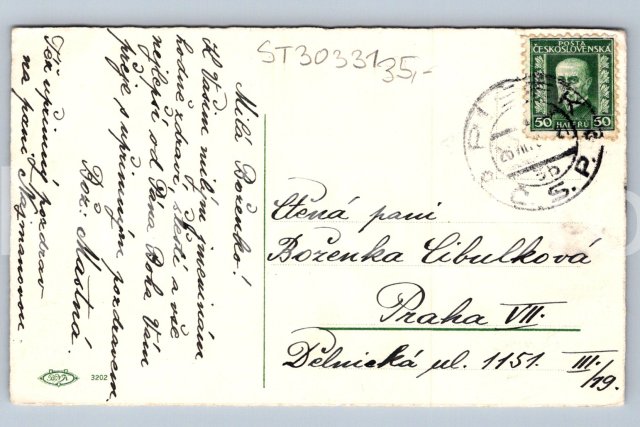 ST30331 35,-
Milá Boženko!
K Vašim milým jmeninám
hodně zdraví, štěstí a vše
nejlepší od Pána Boha Vám
přeje s upřímným pozdravem
Bož. Mastná.
Též upřímný pozdrav
na paní
POŠTA
ČESKOSLOVENSKÁ
50 HALÉŘŮ 50
Ctěná paní
Boženka Cibulková
Praha VII.
Dělnická ul. 1151. III/19.
3202